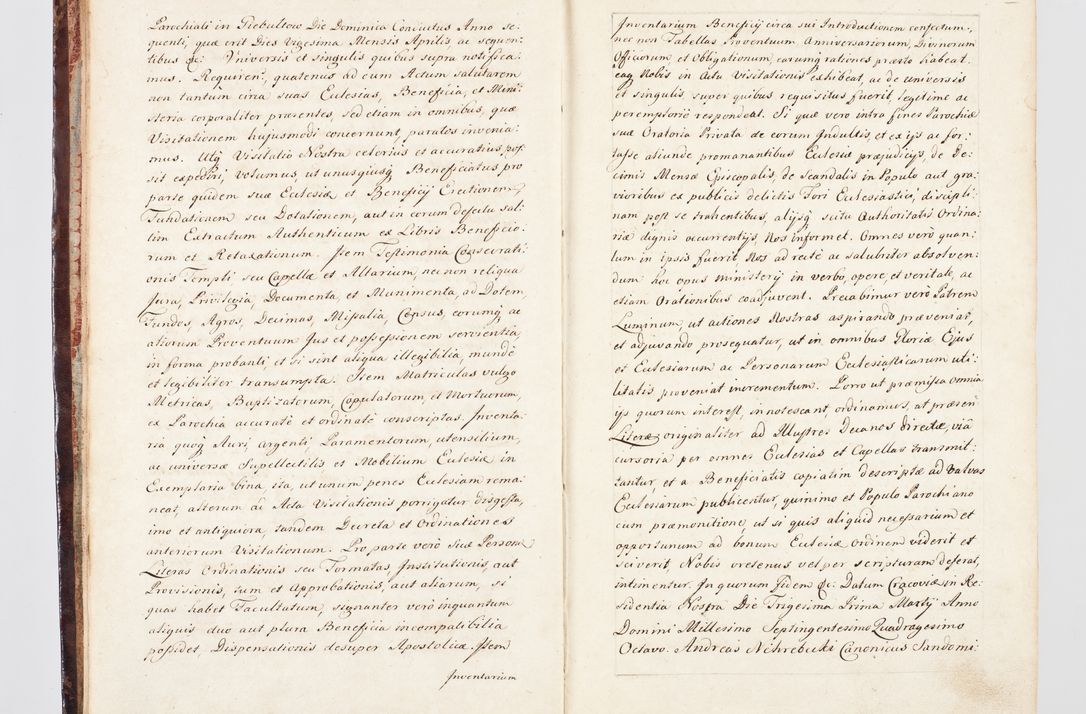 Parochiali in Giebultow Die Dominica Conductus Anno se-
quenti, quæ erit Dies Vigesima Mensis Aprilis ac sequen-
tibus &c: Universis et singulis quibus supra notifica-
mus. Requiren̄, quatenus ad eum Actum salutarem
non tantum circa suas Eclesias, Beneficia, et Mini-
steria corporaliter præsentes, sed etiam in omnibus, quæ
Visitationem hujusmodi concernunt, paratos invenia-
mus. Utq̄ Visitatio Nostra celerius et accuratius pos-
sit expediri, volumus, ut unusquisq̄ Beneficiatus pro
parte quidem suæ Eclesiæ, et Beneficij Erectionem,
Fundationem seu Dotationem, aut in eorum defectu sal-
tim Extractum Authenticum ex Libris Beneficio-
rum et Retaxationum. Item Testimonia Consecrati-
onis Templi seu Capellæ et Altarium, nec non reliqua
Jura, Privilegia, Documenta, et Munimenta, ad Dotem,
Fundos, Agros, Decimas, Missalia, Census, eorumq̄ ac
aliorum Proventuum Jus et possessionem servientia,
in forma probanti, et si sint aliqua illegibilia, mundè
et legibiliter transumpta. Item Matriculas vulgo
Metricas, Baptizatorum, Copulatorum, et Mortuorum,
ex Parochia accuratè et ordinatè conscriptas. Inventa-
ria quoq̄ Auri, Argenti, Paramentorum, utensilium,
ac universæ Supellectilis et Mobilium Eclesiæ in
Exemplaria bina, ita, ut unum penes Ecclesiam rema-
neat, alterum ac Acta Visitationis porrigatur digesta,
imo et antiquiora, tandem Decreta et Ordinationes
anteriorum Visitationum. Pro parte verò suæ Personæ
Literas Ordinationis seu Formatas, Institutionis, aut
Provisionis, tum et Approbationis, aut aliarum, si
quas habet Facultatum, signanter verò inquantum
aliquis duo aut plura Beneficia incompatibilia
possidet, Dispensationis desuper Apostolicæ. Item
Inventarium
Inventarium Beneficij circa sui Introductionem confectum,
nec non Tabellas Proventuum Anniversariorum, Divinorum
Officiorum et Obligationum, earumq̄ rationes præsto habeat,
eaq̄ Nobis in Actu Visitationis exhibeat, ac de universis
et singulis, super quibus requisitus fuerit, legitime ac
peremptoriè respondeat. Si quæ vero intra fines Parochiæ
suæ Oratoria Privata de eorum Indultis, et ex ijs ac for-
tasse aliunde promanantibus Eclesiæ præjudicijs, de De-
cimis Mensæ Episcopalis, de Scandalis in Populo aut gra-
vioribus ex publicis delictis Fori Ecclesiastici, discipli-
nam post se trahentibus, alijsq̄ scitu Authoritatis Ordina-
riæ dignis occurrentijs, Nos informet. Omnes verò quan-
tum in ipsis fuerit, Nos ad rectè ac salubriter absolven-
dum hoc opus ministerij in verbo, opere, et veritate, ac
etiam Orationibus coadjuvent. Precabimur verò Patrem
Luminum, ut actiones Nostras aspirando præveniat,
et adjuvando prosequatur, ut in omnibus Gloriæ Ejus
et Ecclesiarum ac Personarum Ecclesiasticarum uti-
litatis proveniat incrementum. Porro ut præmissa omnia
ijs quorum interest, innotescant, ordinamus, ut præsen̄
Literæ originaliter ad Illustres Decanos directæ, viâ
cursoria per omnes Eclesias et Capellas transmit-
tantur, et a Beneficiatis copiatim descriptæ ad Valvas
Ecclesiarum publicentur, quinimo et Populo Parochiano
cum præmonitione, ut si quis aliquid necessarium et
opportunum ad bonum Eclesiæ ordinem viderit et
sciverit, Nobis præsenus vel per scripturam deferat,
intimentur. In quorum Fidem &c: Datum Cracoviæ in Re-
sidentia Nostra Die Trigesima Prima Martij Anno
Domini Millesimo Septingentesimo Quadragesimo
Octavo. Andreas Nehrebecki Canonicus Sandomi-